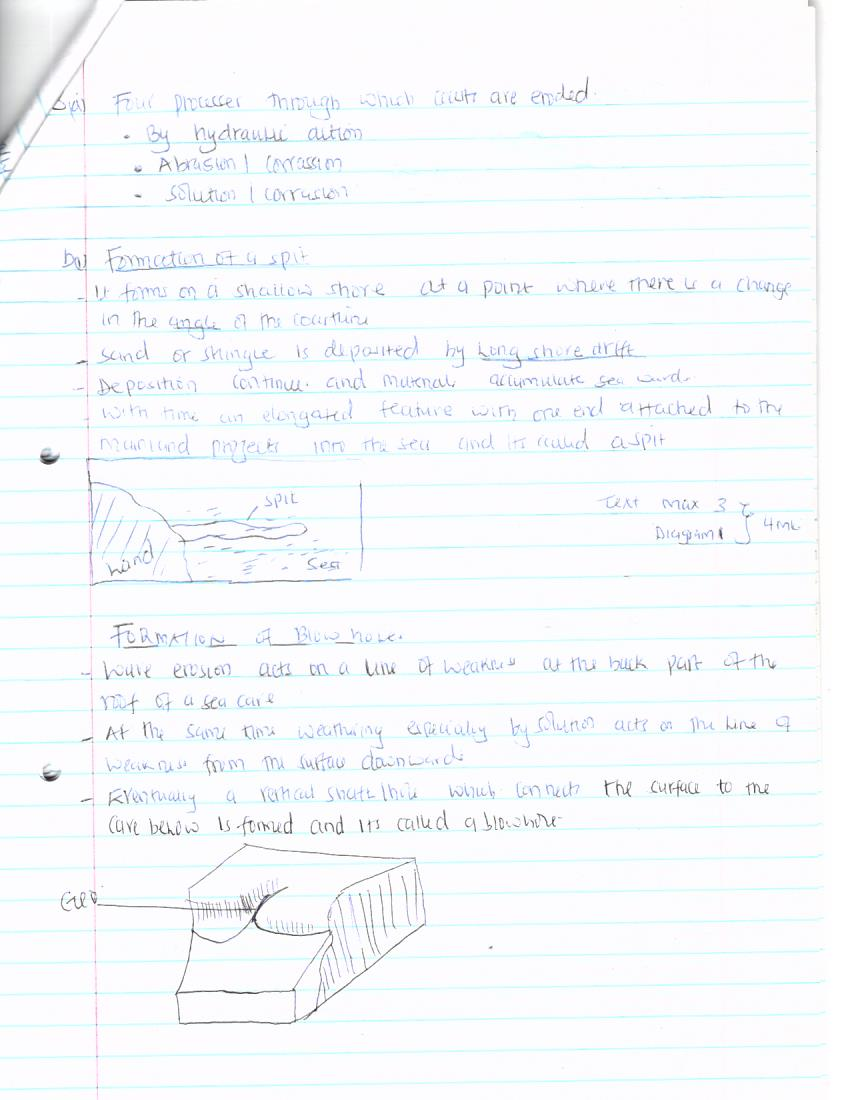 (a) Four processes through which coasts are eroded.
• By hydraulic action
• Abrasion / corrassion
• Solution / corrusion
b(i) Formation of a spit
- It forms on a shallow shore at a point where there is a change
in the angle of the coastline
- Sand or shingle is deposited by Long shore drift
- Deposition continues and materials accumulate sea wards
- With time an elongated feature with one end attached to the
mainland projects into the sea and its called a spit
spit
Land
Sea
Text max 3
Diagram 1
4mks
FORMATION OF Blow hole.
- Wave erosion acts on a line of weakness at the back part of the
roof of a sea cave
- At the same time weathering especially by solution acts on the line of
weakness from the surface downwards
- Eventually a vertical shaft/hole which connects the surface to the
cave below is formed and its called a blowhole
Geo